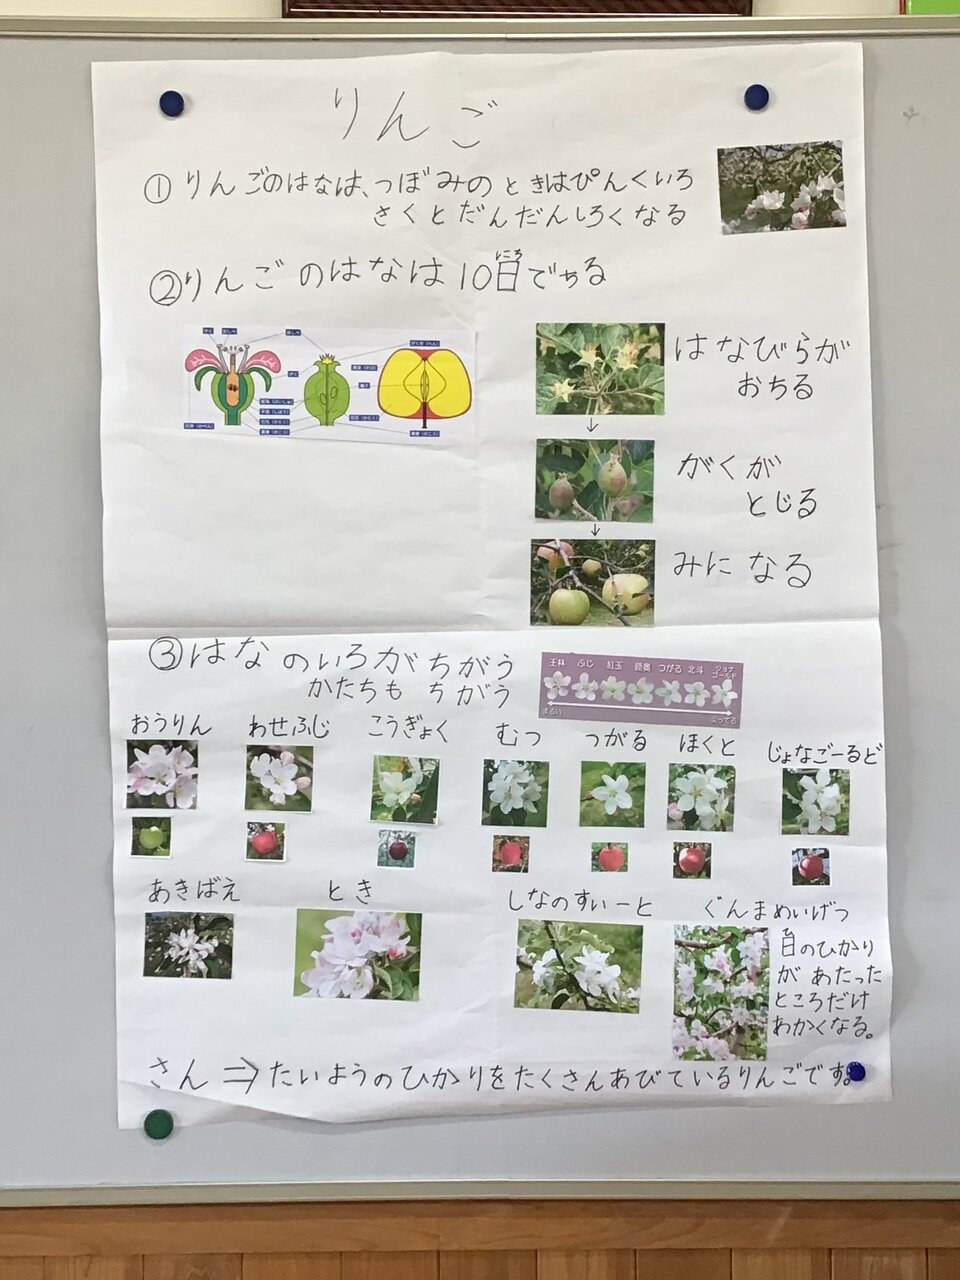 りんご
①りんごのはなは、つぼみのときはぴんくいろ
さくとだんだんしろくなる
②りんごのはなは10日でちる
にち
はなびらが
おちる
↓
がくが
とじる
↓
みになる
③はなのいろがちがう
かたちもちがう
王林 ふじ 紅玉 陸奥 つがる 北斗 ジョナゴールド
まるい 尖ってる
おうりん わせふじ こうぎょく むつ つがる ほくと じょなごーるど
あきばえ とき しなのすいーと ぐんまめいげつ
日のひかり
ひ
があたった
ところだけ
あかくなる。
さん⇒たいようのひかりをたくさんあびているりんごです。